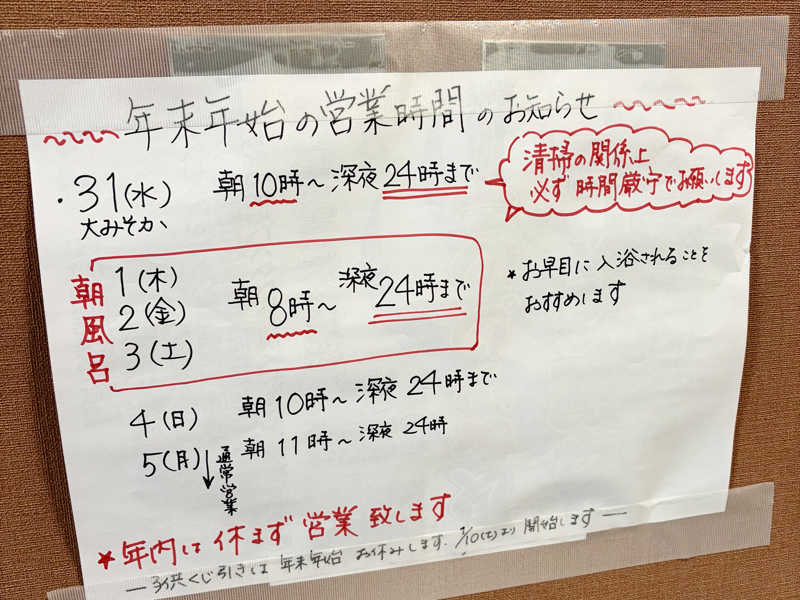 年末年始の営業時間のお知らせ
・31(水) 朝10時〜深夜24時まで
大みそか
清掃の関係上
必ず時間厳守でお願いします
朝風呂
1(木)
2(金) 朝8時〜深夜24時まで
3(土)
*お早目に入浴されることを
おすすめします
4(日) 朝10時〜深夜24時まで
5(月) 朝11時〜深夜24時
↓通常営業
*年内は休まず営業致します
―子供くじ引きは年末年始お休みします。1/10(土)より開始します―